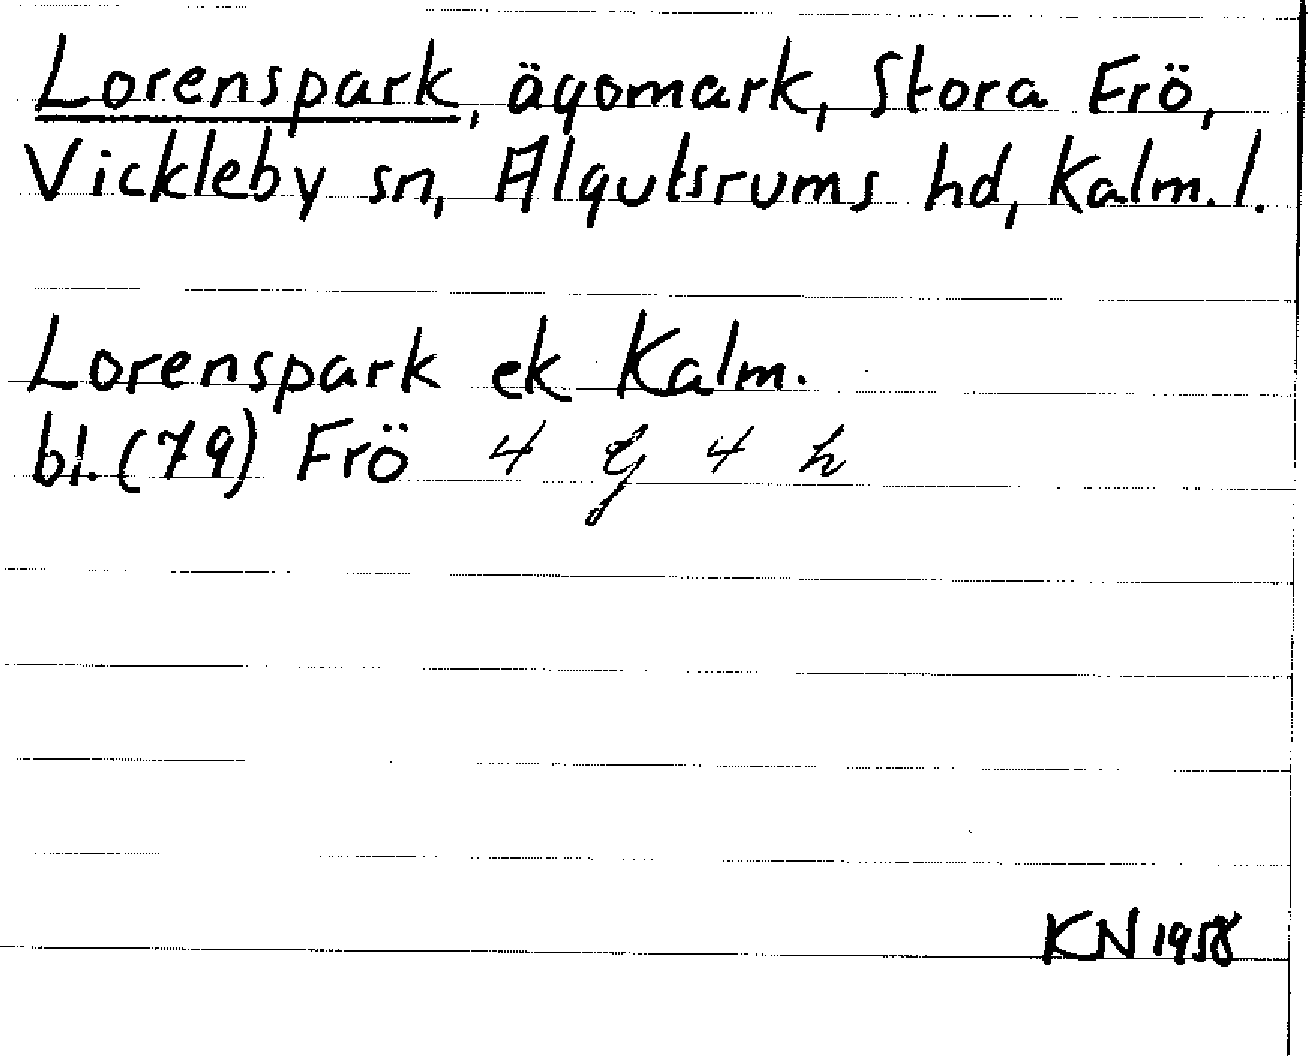 Lorenspark, ägomark, Stora Frö,
Vickleby sn, Algutsrums hd, Kalm. l.
Lorenspark ek Kalm.
bl. (79) Frö 4 G 4 h
KN 1958